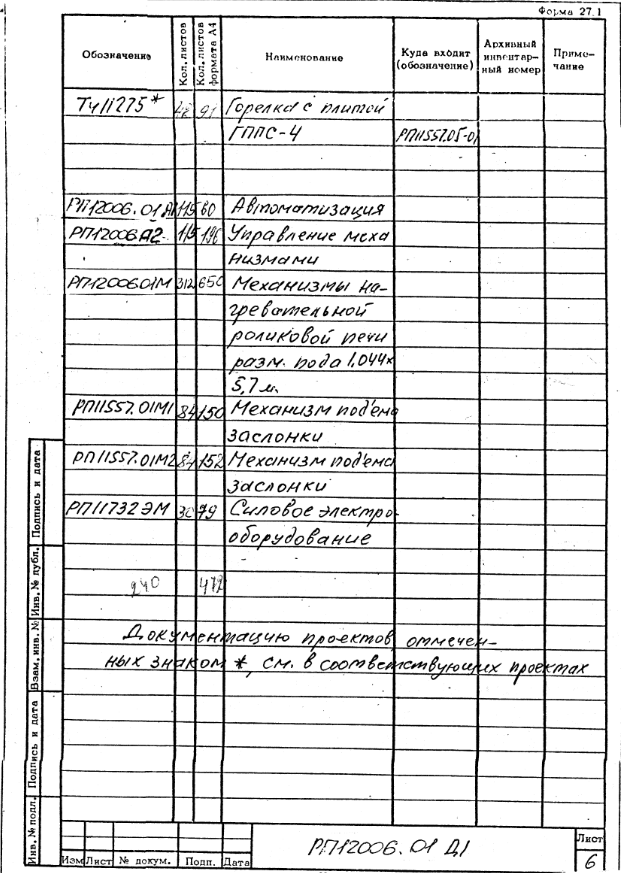 Форма 27.1
Обозначение Кол. листов Кол. листов формата А4 Наименование Куда входит (обозначение) Архивный инвентарный номер Примечание
ТЧ11275* 91 Горелка с плитой
ГППС-4 РП11557.05-01
РП12006.01 А1 115 60 Автоматизация
РП12006.А2 115 196 Управление меха
низмами
РП12006.01М 312 650 Механизмы на-
гревательной
роликовой печи
разм. пода 1,044х
5,7 м.
РП11557.01М1 84 150 Механизм подъема
заслонки
РП11557.01М2 84 152 Механизм подъема
заслонки
РП11732 ЭМ 30 79 Силовое электро-
оборудование
240 472
Документацию проектов, отмечен-
ных знаком *, см. в соответствующих проектах
Подпись и дата
Инв. № публ.
Взам. инв. №
Подпись и дата
Инв. № подл.
Изм Лист № докум. Подп. Дата
РП12006.01 Д1
Лист
6